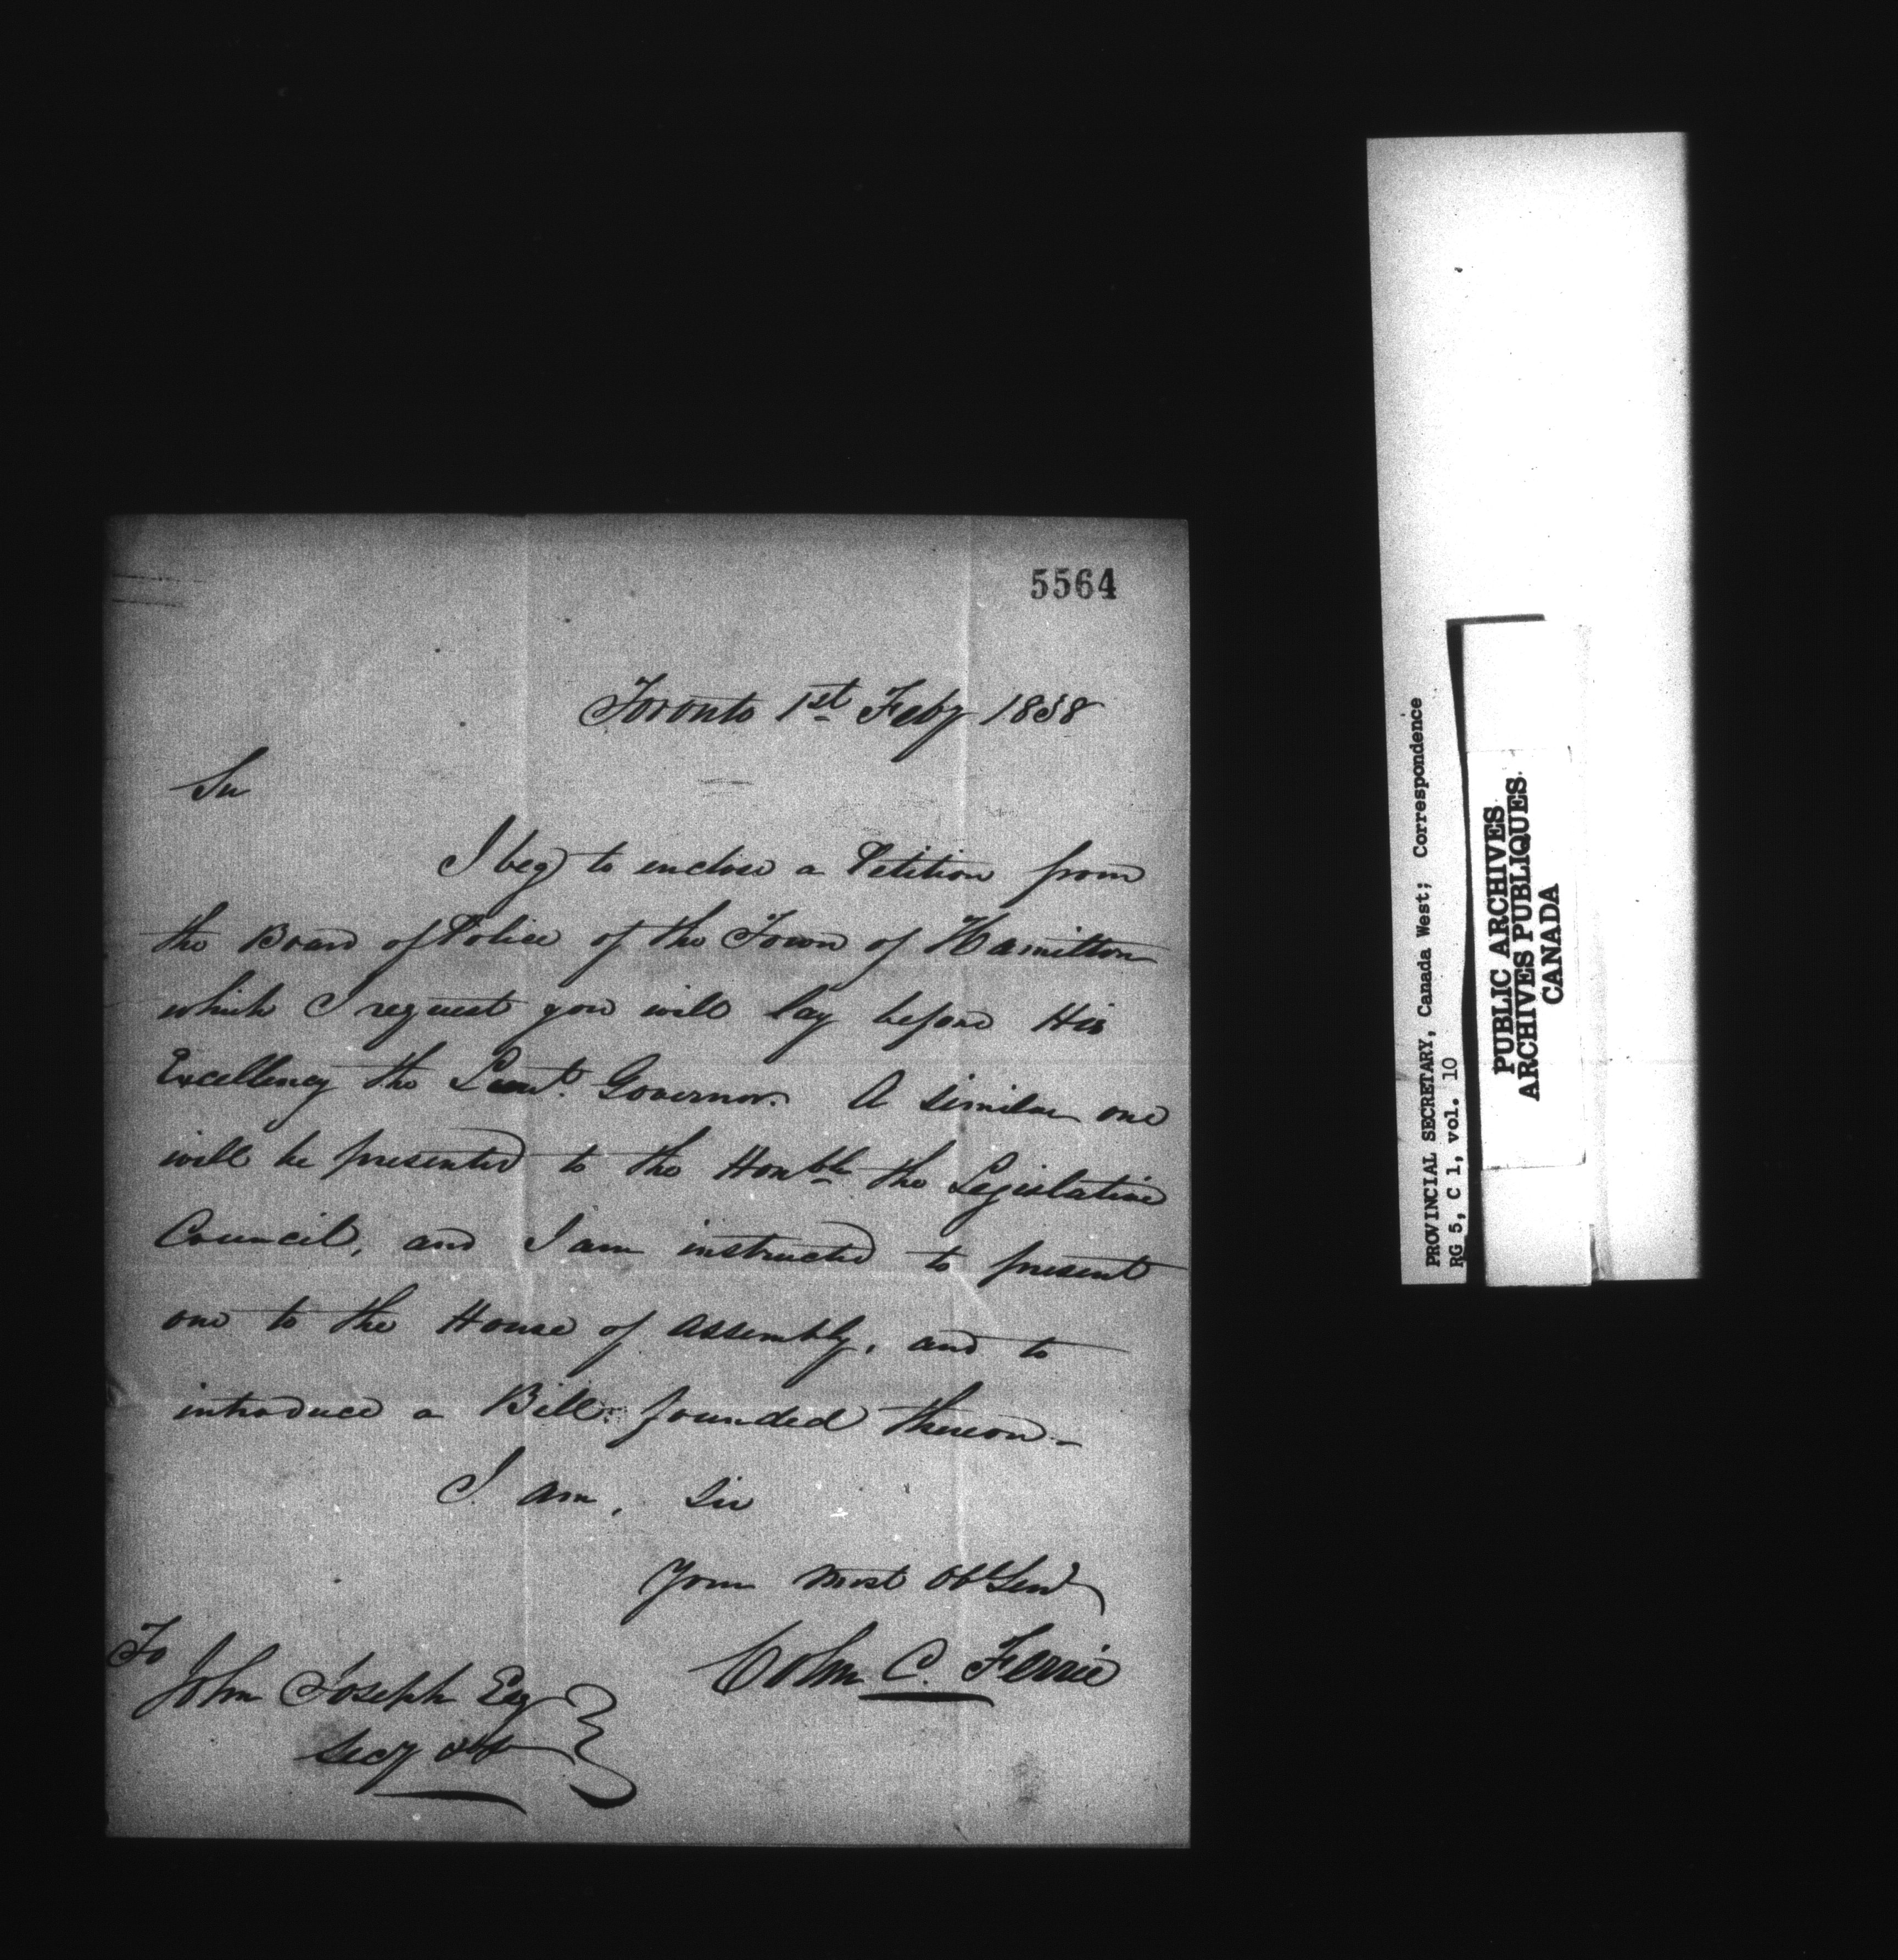 5564
Toronto 1st Feby 1838
Sir
I beg to enclose a Petition from
the Board of Police of the Town of Hamilton
which I request you will lay before His
Excellency the Lieut. Governor. A similar one
will be presented to the Honble the Legislative
Council, and I am instructed to present
one to the House of Assembly, and to
introduce a Bill founded thereon-
I am, Sir
Your most Obt Servt
Colin C. Ferrie
To
John Joseph Esq
Secy &c
PROVINCIAL SECRETARY, Canada West; Correspondence
RG 5, C 1, vol. 10
PUBLIC ARCHIVES
ARCHIVES PUBLIQUES
CANADA